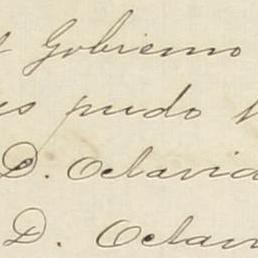 Gobierno
pudo
D. Octavia
D. Octav